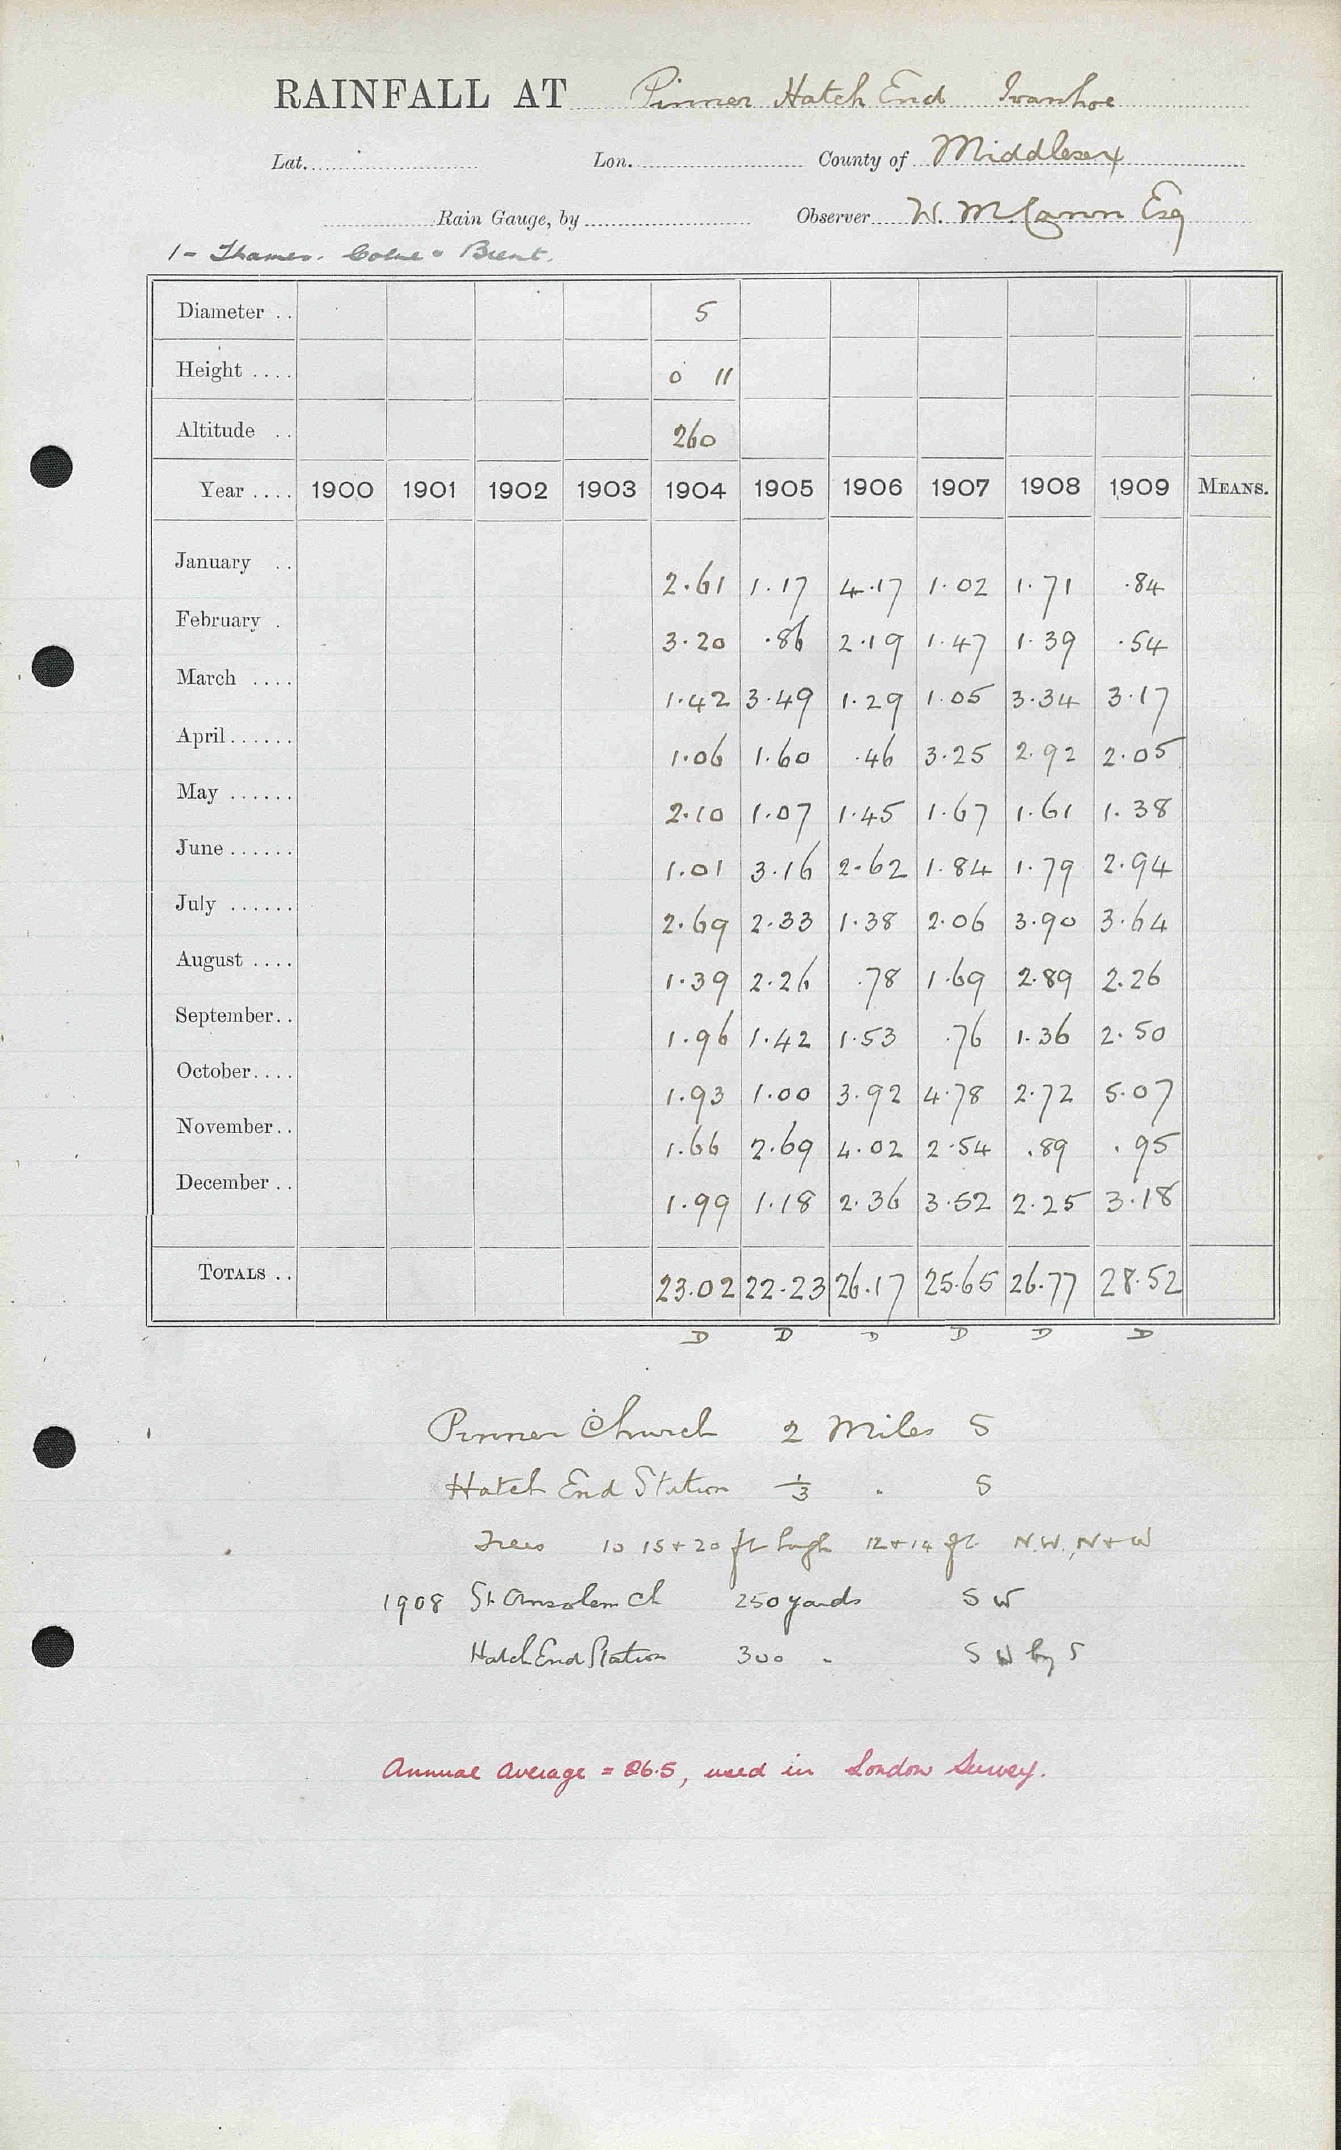 RAINFALL AT Pinner Hatch End Ivanhoe
Lat. Lon. County of Middlesex
Rain Gauge, by Observer W. McCann Esq
1 - Thames. Colne & Brent.
Diameter .. 5
Height .... 0 11
Altitude .. 260
Year .... 1900 1901 1902 1903 1904 1905 1906 1907 1908 1909 MEANS.
January .. 2.61 1.17 4.17 1.02 1.71 .84
February . 3.20 .86 2.19 1.47 1.39 .54
March .... 1.42 3.49 1.29 1.05 3.34 3.17
April...... 1.06 1.60 .46 3.25 2.92 2.05
May ...... 2.10 1.07 1.45 1.67 1.61 1.38
June ...... 1.01 3.16 2.62 1.84 1.79 2.94
July ...... 2.69 2.33 1.38 2.06 3.90 3.64
August .... 1.39 2.26 .78 1.69 2.89 2.26
September.. 1.96 1.42 1.53 .76 1.36 2.50
October.... 1.93 1.00 3.92 4.78 2.72 5.07
November.. 1.66 2.69 4.02 2.54 .89 .95
December .. 1.99 1.18 2.36 3.52 2.25 3.18
TOTALS .. 23.02 22.23 26.17 25.65 26.77 28.52
D D D D D D
Pinner Church 2 Miles S
Hatch End Station 1/3 " S
Trees 10 15 + 20 ft high 12 + 14 ft N.W., N + W
1908 St Ansolem Ch 250 yards S W
Hatch End Station 300 " S W by S
Annual average = 26.5, used in London Survey.